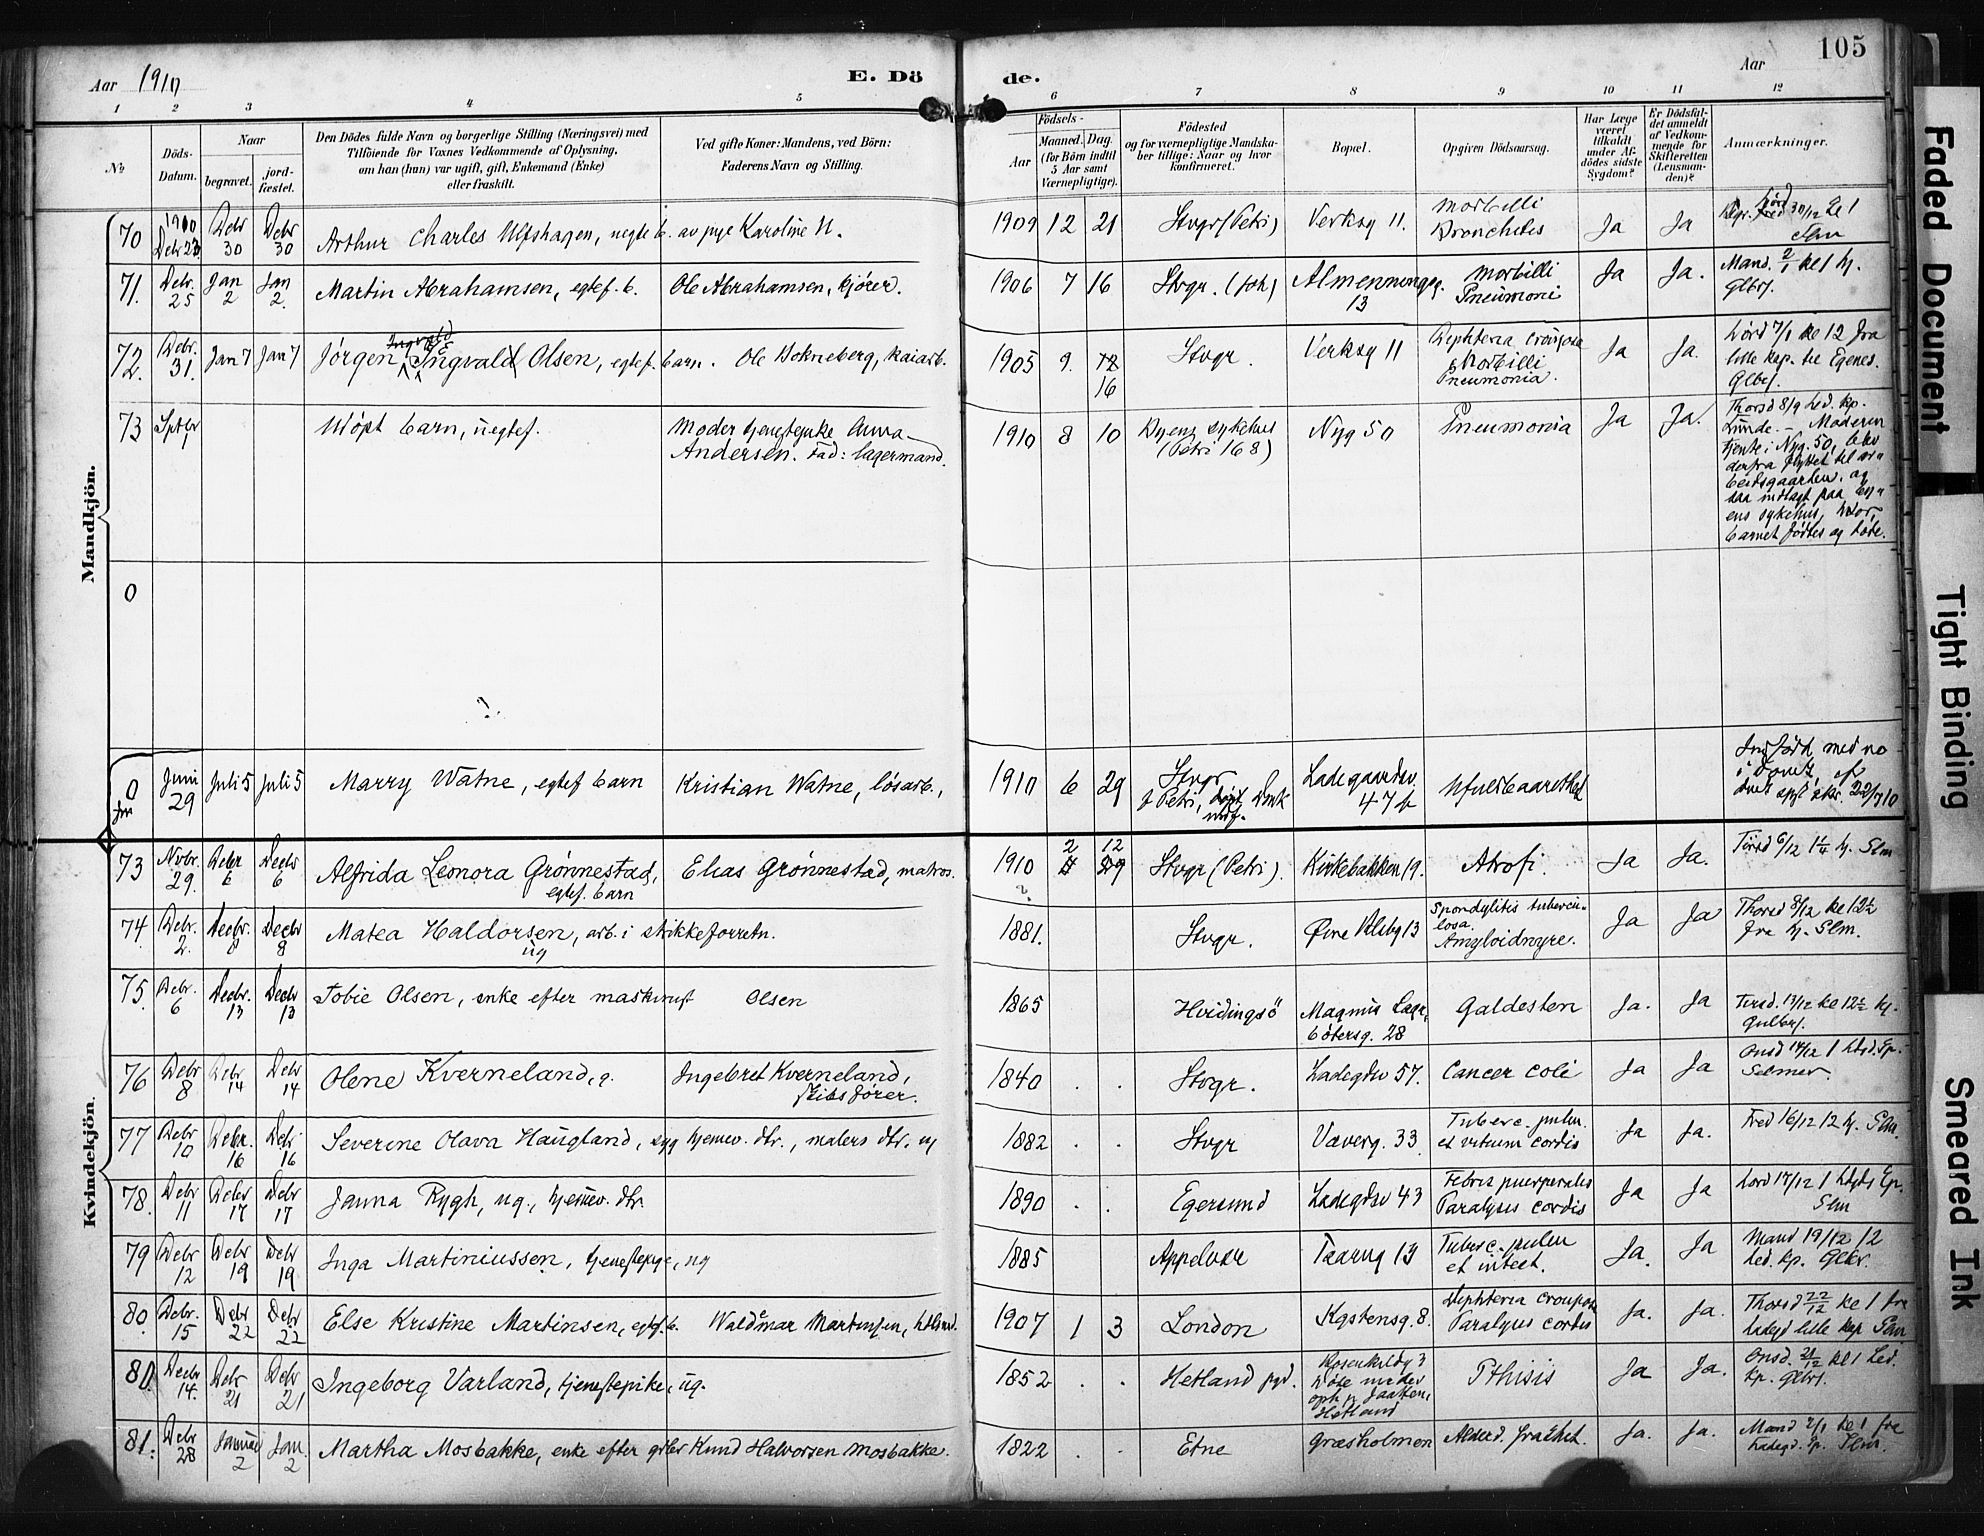 Aar 1910
E. Dö
de.
Aar
105
1 2 3 4 5 6 7 8 9 10 11 12
No
Döds-
Datum.
Naar
begravet.
jord-
fæstet.
Den Dödes fulde Navn og borgerlige Stilling (Næringsvei) med
Tilföiende for Voxnes Vedkommende af Oplysning,
om han (hun) var ugift, gift, Enkemand (Enke)
eller fraskilt.
Ved gifte Koner: Mandens, ved Börn:
Faderens Navn og Stilling.
Födsels-
Aar
Maaned. Dag.
(for Börn indtil
5 Aar samt
Værnepligtige).
Födested
og for værnepligtige Mandska-
ber tillige: Naar og hvor
konfirmeret.
Bopæl.
Opgiven Dödsaarsag.
Har Læge
været
tilkaldt
under Af-
dödes sidste
Sygdom?
Er Dödsfal-
det anmeldt
af Vedkom-
mende for
Skifteretten
(Lensman-
den)?
Anmærkninger.
Mandkjön.
70 1910 Debr 23 Debr 30 Debr 30 Arthur Charles Ulfshagen, uegte b. av pige Karoline U. 1909 12 21 Stvgr (Petri) Verksg 11. Morbilli Bronchitis Ja Ja 30/12 kl 1 Slm
71. Debr. 25 Jan 2 Jan 2. Martin Abrahamsen, egtef. b. Ole Abrahamsen, kjörer. 1906 7 16 Stvgr. (Joh) Almenningsg. 13 Morbilli Pneumoni Ja Ja. Mand. 2/1 kl 1 hj. Glbrs.
72. Debr. 31. Jan 7 Jan 7 Jørgen Ingvald Olsen, egtef. barn. Ole Bokneberg, kaiarb. 1905 9. 12 16 Stvgr. Verksg 11 Diphteria crouposa Morbilli Pneumonia. Ja Ja. Lörd 7/1 kl 12 fra lille kap. til Egenes. Glbrs.
73 Sptbr 1 Udöpt barn, uegtef. Moder tjenestepike Anna Andersen. Fad: lagermand. 1910 8 10 Byens sykehus (Petri 168) Nyg 50 Pneumonia Ja Ja. Thorsd 8/9 Led. kp. Lunde. – Moderen tjente i Nyg. 50, blev derfra flyttet til ar-
beidsgaarden, og saa indlagt paa by-
ens sykehus, hvor barnet födtes og döde.
0
0 Juni 29 Juli 5 Juli 5 Marry Watne, egtef barn Kristian Watne, lösarb., 1910 6 29 Stvgr Petri, Ladegaardsv. 47 b Ufuldbaarethet Indförd med no i 22/7 10
Kvindekjön.
73 Nvbr. 29. Debr 6 Decbr 6 Alfrida Leonora Grønnestad, egtef. barn Elias Grønnestad, matros. 1910 2 12 29 Stvgr (Petri). Kirkebakken 19. Atrofi. Ja Ja. Tirsd 6/12 1 1/4 hj. Slm
74. Debr. 2. Decbr. 8 Decbr 8 Matea Haldorsen, arb. i strikkeforretn. ug 1881. Stvgr. Øvre Blebg 13 Spondylitis tubercu-
losa. Amyloidnyre. Ja Ja Thorsd 8/12 kl 12 1/2 fra hj. Slm.
75. Debr. 6 Decbr. 13 Decbr 13 Tobie Olsen, enke efter maskinist Olsen 1865 Hvidingsö Magnus Lagabötersg. 28 Galdesten Ja. Ja Tirsd. 13/12 kl 12 1/2 hj. Gulbrs.
76 Debr 8 Debr 14 Debr 14 Olene Kverneland, g. Ingebret Kverneland, skibsförer. 1840 . . Stvgr. Ladegdsv 57. Cancer coli Ja Ja Onsd 14/12 1 Selmer.
77 Debr 10 Debr. 16 Debr 16 Severine Olava Haugland, syg hjemev. dtr., malers dtr. ug 1882 . . Stvgr Væverg. 33 Tuberc. pulm. et vitium cordis Ja Ja. Fred 16/12 12 hj. Slm.
78. Debr 11 Debr 17 Debr 17 Janna Rygh, ug., hjemev. dtr. 1890 . . Egersund Ladegdsv 43 Febris puerperalis Paralysis cordis Ja Ja Lörd 17/12 1 Slm
79 Debr 12 Debr 19 Debr 19 Inga Martiniussen, tjenestepige, ug 1885 Appelvær Taarng 13 Tuberc. pulm et intest. Ja. Ja Mand 19/12 12 Led. kp. Glbr.
80. Debr. 15 Debr 22 Debr 22 Else Kristine Martinsen, egtf. b. Waldemar Martinsen, 1907 1 3 London Kgstensg. 8. Diphteria crouposa Paralysis cordis Ja. Ja. Thorsd 22/12 kl 1 fra Ladegd lille kap Slm
80. Decbr 14. Debr 21 Debr 21 Ingeborg Varland, tjenestepike, ug. 1852 . . Hetland pgd. Rosenkildg 3 Hetland Pthisis Ja Ja. Onsd. 21/12 kl 1 Led. kp. Glbrs.
81. Debr 28 Januar 2 Jan. 2 Martha Mosbakke, enke efter grbr Knud Halvorsen Mosbakke. 1822 . . Etne Græsholmen Alderd. Ja. Ja. Mand 2/1 kl 1 fra Ladegd. kp. Slm.
Faded Document
Tight Binding
Smeared Ink